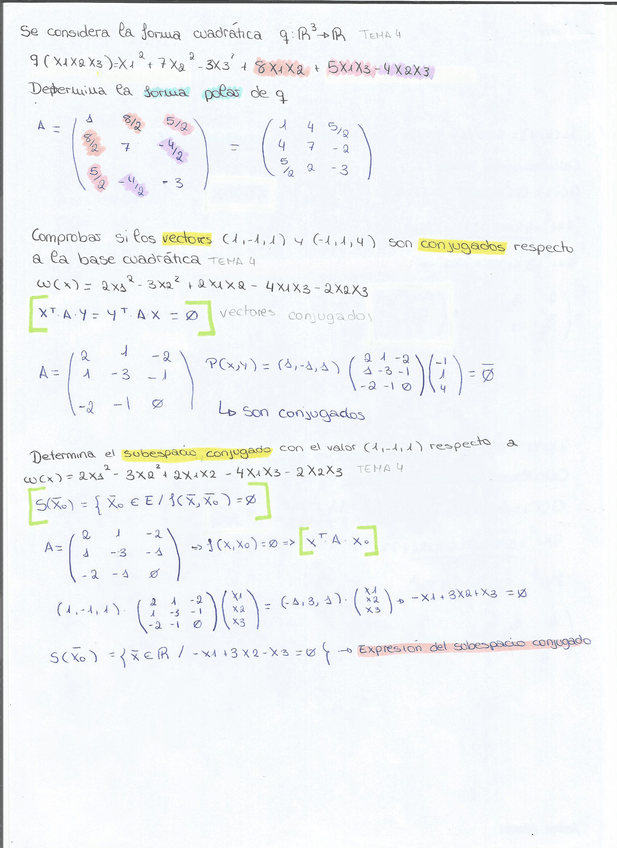 Se considera la forma cuadrática q: ℝ³→ℝ TEMA 4
q(x1x2x3)=x1² + 7x2² - 3x3' + 8x1x2 + 5x1x3 - 4x2x3
Determina la forma polar de q
A = ( 1 8/2 5/2 ) = ( 1 4 5/2 )
( 8/2 7 -4/2 ) ( 4 7 -2 )
( 5/2 -4/2 -3 ) ( 5/2 2 -3 )
Comprobar si los vectores (1,-1,1) y (-1,1,4) son conjugados respecto
a la base cuadrática TEMA 4
ω(x) = 2x1² - 3x2² + 2x1x2 - 4x1x3 - 2x2x3
[ Xᵀ·A·Y = Yᵀ·A X = Ø ] vectores conjugados
A = ( 2 1 -2 ) P(x,y) = (1,-1,1) ( 2 1 -2 ) ( -1 ) = Ø̅
( 1 -3 -1 ) ( 1 -3 -1 ) ( 1 )
( -2 -1 Ø ) ( -2 -1 Ø ) ( 4 )
↳ son conjugados
Determina el subespacio conjugado con el valor (1,-1,1) respecto a
ω(x) = 2x1² - 3x2² + 2x1x2 - 4x1x3 - 2x2x3 TEMA 4
[ S(x̅0) = { x̅0 ∈ E / f(x̅, x̅0) = Ø ]
A = ( 2 1 -2 ) → f(x,x0) = Ø => [ Xᵀ·A·X0 ]
( 1 -3 -1 )
( -2 -1 Ø )
(1,-1,1) · ( 2 1 -2 ) ( x1 ) = (-1,3,1) · ( x1 ) → -x1 + 3x2 + x3 = Ø
( 1 -3 -1 ) ( x2 ) ( x2 )
( -2 -1 Ø ) ( x3 ) ( x3 )
S(x̅0) = { x̅ ∈ ℝ / -x1 + 3x2 - x3 = Ø { → Expresión del subespacio conjugado